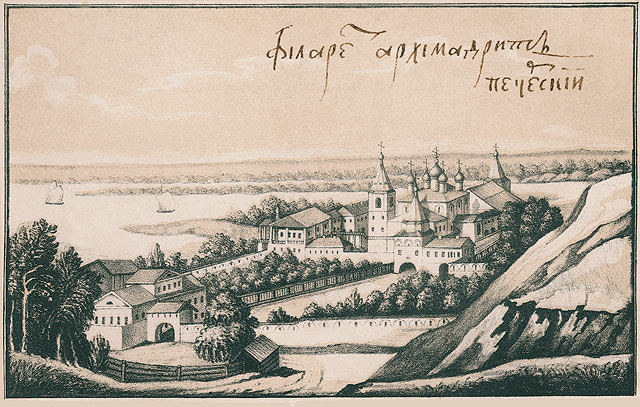 Філарет архімандритъ
печерскій